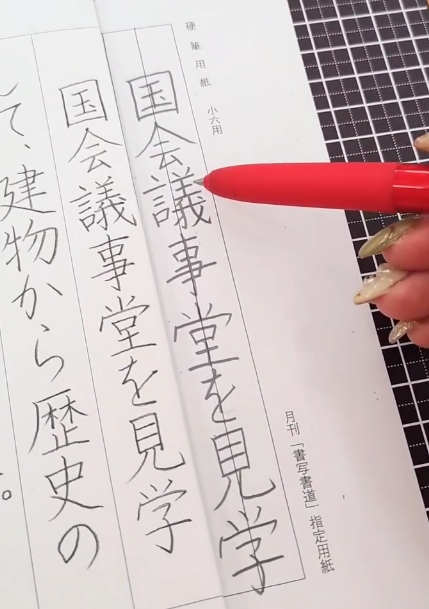 硬筆用紙 小六用
月刊「書写書道」指定用紙
国会議事堂を見学
国会議事堂を見学
て、建物から歴史の
。